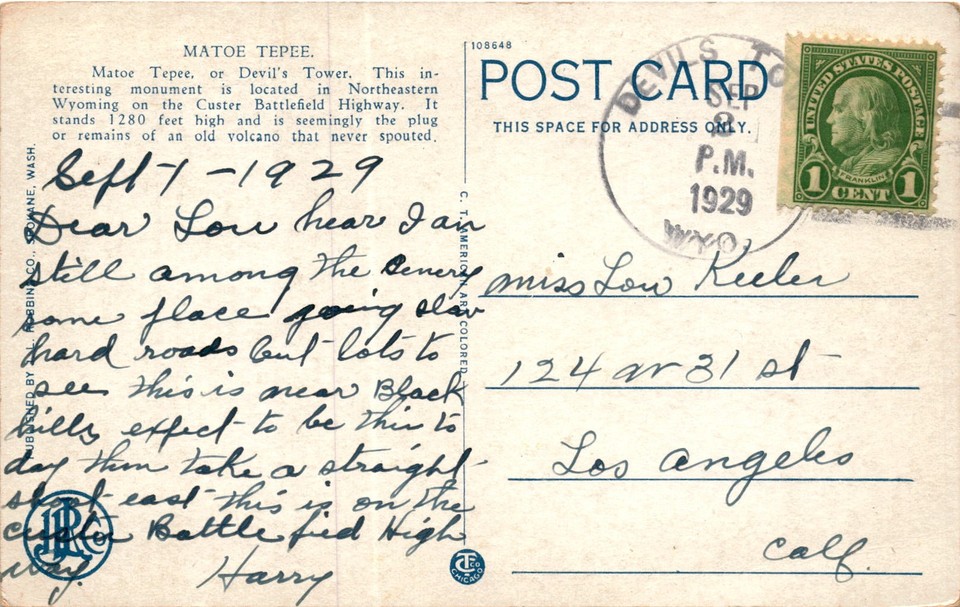 MATOE TEPEE.
Matoe Tepee, or Devil's Tower. This in-
teresting monument is located in Northeastern
Wyoming on the Custer Battlefield Highway. It
stands 1280 feet high and is seemingly the plug
or remains of an old volcano that never spouted.
Sept 1 - 1929
Dear Lou hear I am
still among the Cenery
some place going slow
hard roads but lots to
see this is near Black
hills expect to be thru to
day then take a straight
shoot east this is on the
Custer Battle fied High
way. Harry
PUBLISHED BY ROBBINS CO., SPOKANE, WASH.
C. T. AMERICAN ART COLORED
108648
POST CARD
THIS SPACE FOR ADDRESS ONLY.
DEVILS TO
SEP
2
P.M.
1929
WYO.
UNITED STATES POSTAGE
FRANKLIN
1 CENT 1
miss Lou Keeler
124 W 31 st
Los Angeles
Calf.
CT CO
CHICAGO